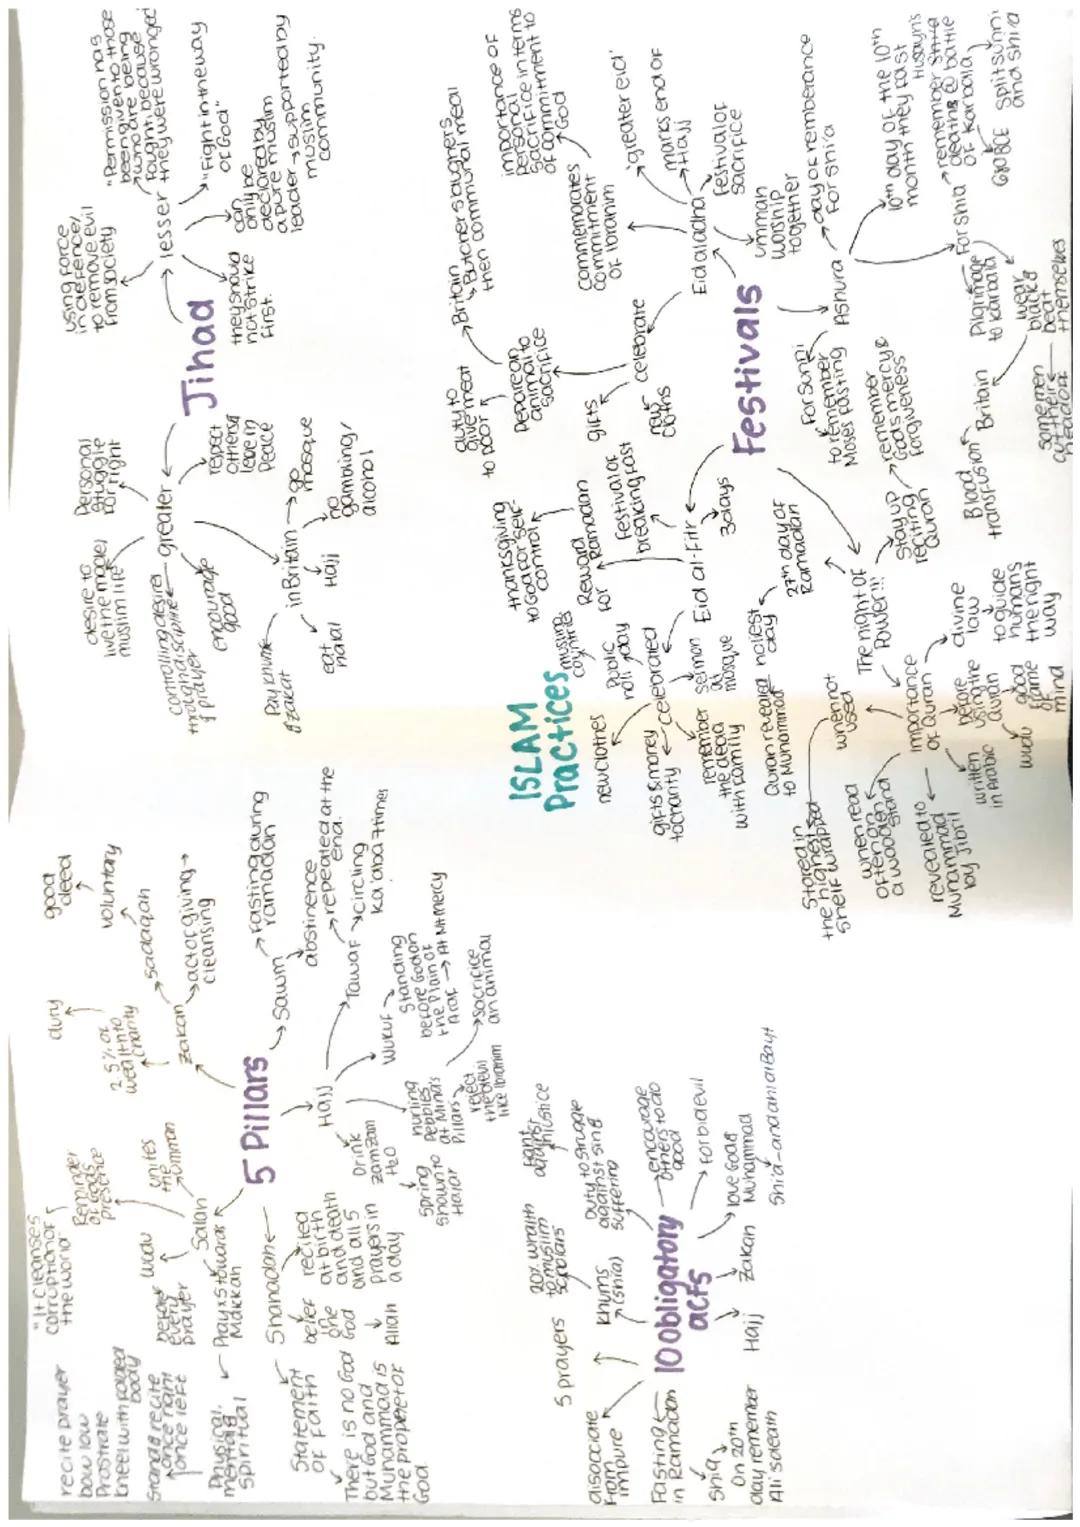 ISLAM
Practices
5 Pillars
Shahadah
Statement
of Faith
There is no God
but God and
Muhammad is
the prophet of
God
belief
in
one
God
Allah
recited
at birth
and death
and all 5
prayers in
a day
Salah
Pray x5 towards
Makkah
Physical,
mental &
spiritual
before
every
prayer
wudu
stand & recite
once right
once left
recite prayer
bow low
Prostrate
kneel with folded
body
"It cleanses
corruption of
the world"
Reminder
of Gods
presence
unites
the
ummah
zakah
2.5% of
wealth to
charity
duty
sadaqah
voluntary
good
deed
act of giving →
cleansing
Sawm
Fasting during
ramadan
abstinence
Hajj
Tawaf
repeated at the
end.
circling
ka'aba 7 times
Wukuf
Standing
before God on
the Plain of
Araf → At Mt mercy
hurling
pebbles
at Mina's
Pillars
reject
the devil
like Ibrahim
sacrifice
an animal
Drink
zamzam
H2O
Spring
shown to
Hajar
10 obligatory
acts
5 prayers
khums
(shia)
20% wealth
to muslim
scholars
Duty to struggle
against sin &
suffering
fight
against
injustice
encourage
others to do
good
Forbid evil
love God &
Muhammad
Shia - and ahl al Bayt
Zakah
Hajj
Fasting
in Ramadan
Shia
On 20th
day remember
Ali's death
disassociate
from
impure
Jihad
greater
Personal
struggle
for right
desire to
live the model
muslim life
controlling desire
through discipline
& prayer
encourage
good
in Britain
go
mosque
no
gambling/
alcohol
Hajj
eat
halal
Pay khums
& zakat
respect
others &
live in
Peace
lesser
using force
in defence/
to remove evil
from society
"Permission has
been given to those
who are being
fought, because
they were wronged
"Fight in the way
of God"
can
only be
declared by
a pure muslim
leader → supported by
muslim
community.
they should
not strike
first.
Festivals
Eid al-Fitr
3 days
Festival of
breaking fast
Reward
for
Ramadan
thanksgiving
to God for self-
control
celebrated
Public
holiday
muslim
countries
new clothes
gifts & money
to charity
remember
the dead
with family
sermon
at
mosque
Eid al adha
celebrate
new
cloths
gifts
Prepare an
animal to
sacrifice
duty to
give meat
to poor
Britain
Butcher slaughters
then communal meal
commemorates
commitment
of Ibrahim
importance of
personal
sacrifice in terms
of commitment to
God
'greater eid'
marks end of
Hajj
Festival of
sacrifice
ummah
worship
together
Ashura
day of rememberance
for shi'a
10th day of the 10th
month they fast
For Sunni
to remember
Moses fasting
remember
Gods mercy &
forgiveness
For shia
remember
Husayn's
deaths @ battle
of Karbala
680 BCE
Split sunni
and shia
Pilgrimage
to karbala
wear
black &
beat
themselves
some men
cut their
head
Britain
Blood
transfusion
The night of
Power!!!
27th day of
Ramadan
holiest
day
Quran revealed
to Muhammad
stay up
reciting
Quran
importance
of Quran
divine
law
to guide
humans
the right
way
before
using the
Quran
good
frame
of
mind
wudu
written
in Arabic
revealed to
Muhammad
by Jibril
when read
often on
a wooden
stand
when not
used
Stored in
the highest
shelf wrapped